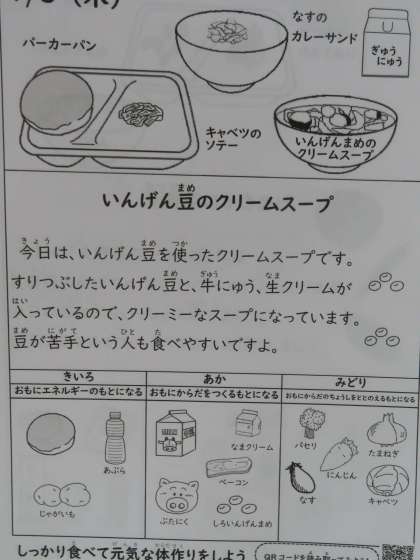 (木)
なすの
カレーサンド
バーガーパン
ぎゅう
にゅう
キャベツの
ソテー
いんげんまめの
クリームスープ
いんげん豆のクリームスープ
今日は、いんげん豆を使ったクリームスープです。
すりつぶしたいんげん豆と、牛にゅう、生クリームが
入っているので、クリーミーなスープになっています。
豆が苦手という人も食べやすいですよ。
きいろ あか みどり
おもにエネルギーのもとになる おもにからだをつくるもとになる おもにからだのちょうしをととのえるもとになる
あぶら
じゃがいも
なまクリーム
ベーコン
ぶたにく
しろいんげんまめ
パセリ
たまねぎ
にんじん
なす
キャベツ
しっかり食べて元気な体作りをしよう